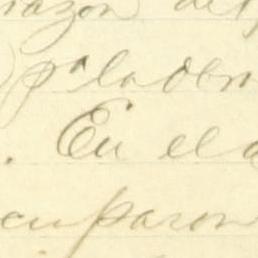 razon del
palabra
. En el a
cuparon